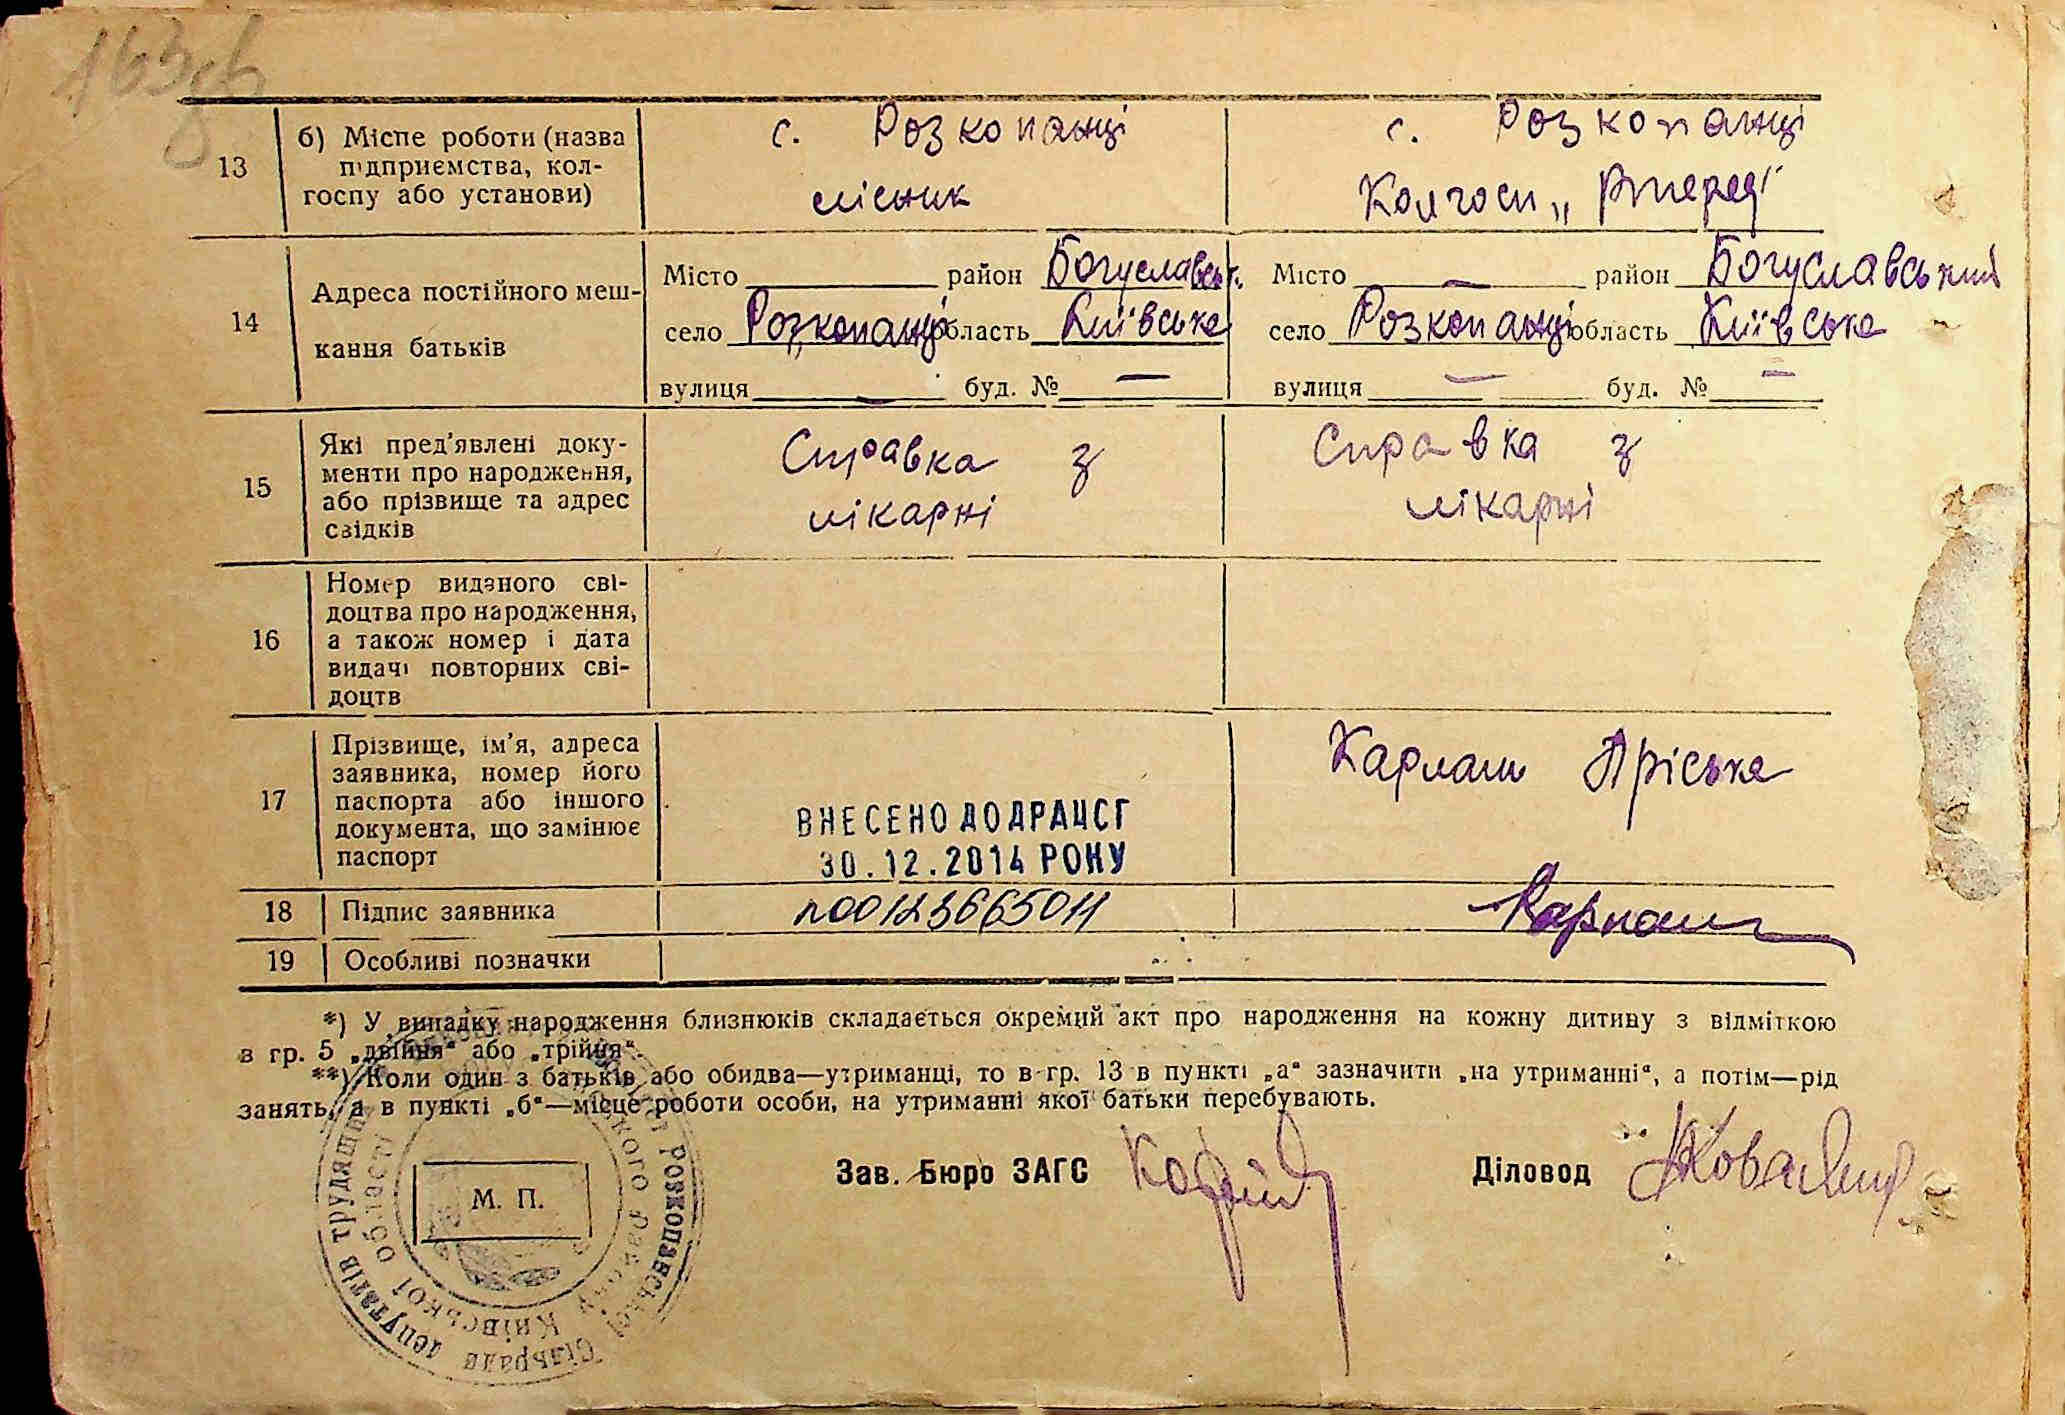 163зв
13
б) Місце роботи (назва
підприємства, кол-
госпу або установи)
с. Розкопанці
лісник
с. Розкопанці
Колгосп „Вперед"
14
Адреса постійного меш-
кання батьків
Місто район Богуславськ.
село Розкопанці область Київська
вулиця — буд. № —
Місто — район Богуславський
село Розкопанці область Київська
вулиця — буд. № —
15
Які пред'явлені доку-
менти про народження,
або прізвище та адрес
свідків
Справка з
лікарні
Справка з
лікарні
16
Номер виданого сві-
доцтва про народження,
а також номер і дата
видачі повторних сві-
доцтв
17
Прізвище, ім'я, адреса
заявника, номер його
паспорта або іншого
документа, що замінює
паспорт
ВНЕСЕНО ДО ДРАЦСГ
30.12.2014 РОКУ
Карлаш Пріська
18
Підпис заявника
Карлаш
19
Особливі позначки
*) У випадку народження близнюків складається окремий акт про народження на кожну дитину з відміткою
в гр. 5 „двійня“ або „трійня“.
**) Коли один з батьків або обидва—утриманці, то в гр. 13 в пункті „а“ зазначити „на утриманні“, а потім—рід
занять, а в пункті „б“—місце роботи особи, на утриманні якої батьки перебувають.
Зав. Бюро ЗАГС
Діловод
М. П.
Розкопанської
Сільрада депутатів трудящих
Київської області
району